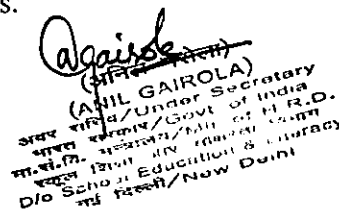 s.
(अनिल गैरोला)
(ANIL GAIROLA)
अवर सचिव/Under Secretary
भारत सरकार/Govt of India
मा.सं.वि. मंत्रालय/Min of H.R.D.
स्कूल शिक्षा और साक्षरता विभाग
D/o School Education & Literacy
नई दिल्ली/New Delhi